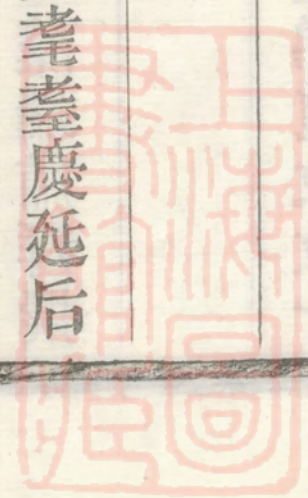 耄耋慶延后
上海圖
書館藏